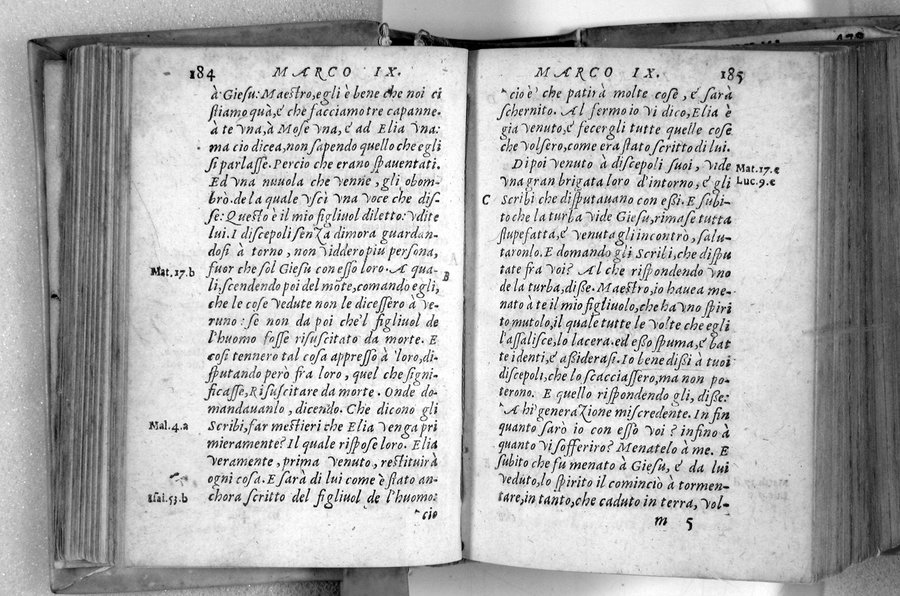 184
MARCO IX.
à Giesu: Maestro, egli è bene che noi ci
stiamo quà, e' che facciamo tre capanne.
à te vna, à Mose vna, e' ad Elia vna:
ma cio dicea, non sapendo quello che egli
si parlasse. Percio che erano spauentati.
Ed vna nuuola che venne, gli obom-
brò. de la quale vscì vna voce che dis-
se: Questo è il mio figliuol diletto: vdite
lui. I discepoli senza dimora guardan-
dosi à torno, non vidder o più persona,
Mat.17.b
fuor che sol Giesu con esso loro. A qua-
B
li, scendendo poi del mõte, comandò egli,
che le cose vedute non le dicessero à ve-
runo: se non da poi che'l figliuol de
l'huomo fosse risuscitato da morte. E
cosi tennero tal cosa appresso à loro, di-
sputando però fra loro, quel che signi-
ficasse, Risuscitare da morte. Onde do-
mandauanlo, dicendo. Che dicono gli
Mal.4.a
Scribi, far mestieri che Elia venga pri
mieramente? Il quale rispose loro. Elia
veramente, prima venuto, restituirà
ogni cosa. E sarà di lui come è stato an-
Isai.53.b
chora scritto del figliuol de l'huomo:
cio
MARCO IX.
185
cio è che patirà molte cose, e' sarà
schernito. Al fermo io vi dico, Elia è
gia venuto, e' fecergli tutte quelle cose
che volsero, come era stato scritto di lui.
Dipoi venuto à discepoli suoi, vide
Mat.17.e
vna gran brigata loro d'intorno, e' gli
Luc.9.e
C
Scribi che disputauano con essi. E subi-
to che la turba vide Giesu, rimase tutta
stupefatta, e' venutagli incontrò, salu-
taronlo. E domando gli Scribi, che dispu
tate fra voi? Al che rispondendo vno
de la turba, disse. Maestro, io hauea me-
nato à te il mio figliuolo, che ha vno spiri
to mutolo, il quale tutte le volte che egli
l'assalisce, lo lacera. ed esso spuma, e' bat
te i denti, e' assiderasi. Io bene dissi à tuoi
discepoli, che lo scacciassero, ma non po-
terono. E quello rispondendo gli, disse:
Ahi generazione miscredente. In fin
quanto sarò io con esso voi? infino à
quanto vi sofferiro? Menatelo à me. E
subito che fu menato à Giesu, e' da lui
veduto, lo spirito il cominciò à tormen-
tare, in tanto, che caduto in terra, vol-
m 5